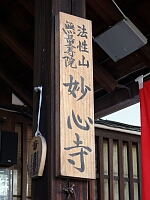 法性山
無量寿院
妙心寺